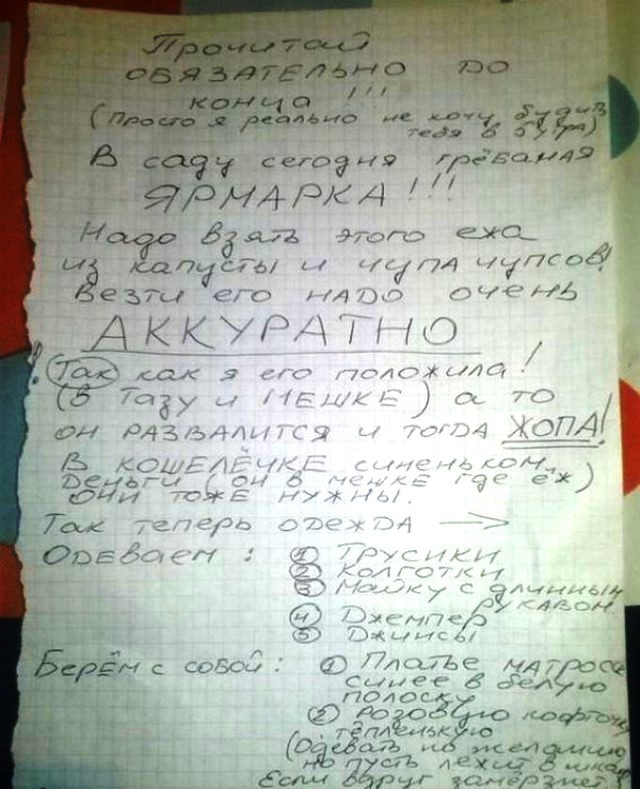 Прочитай
ОБЯЗАТЕЛЬНО ДО
конца !!!
(Просто я реально не хочу будить
тебя в 5 утра)
В саду сегодня грёбаная
ЯРМАРКА!!!
Надо взять этого ежа
из капусты и чупа чупсов!
Везти его НАДО очень
АККУРАТНО
! Так как я его положила!
(В ТАЗУ и МЕШКЕ) а то
он РАЗВАЛИТСЯ и тогда ЖОПА!
В кошелёчке синеньком
Деньги (он в мешке где ёж)
они тоже нужны.
Так теперь одежда →
Одеваем: ① Трусики
② Колготки
③ Майку с длинным
рукавом
④ Джемпер
⑤ Джинсы
Берём с собой: ① Платье матроса
синее в белую
полоску
② розовую кофточку
тёпленькую
(Одевать по желанию
но пусть лежит в шкафу
Если вдруг замёрзнет